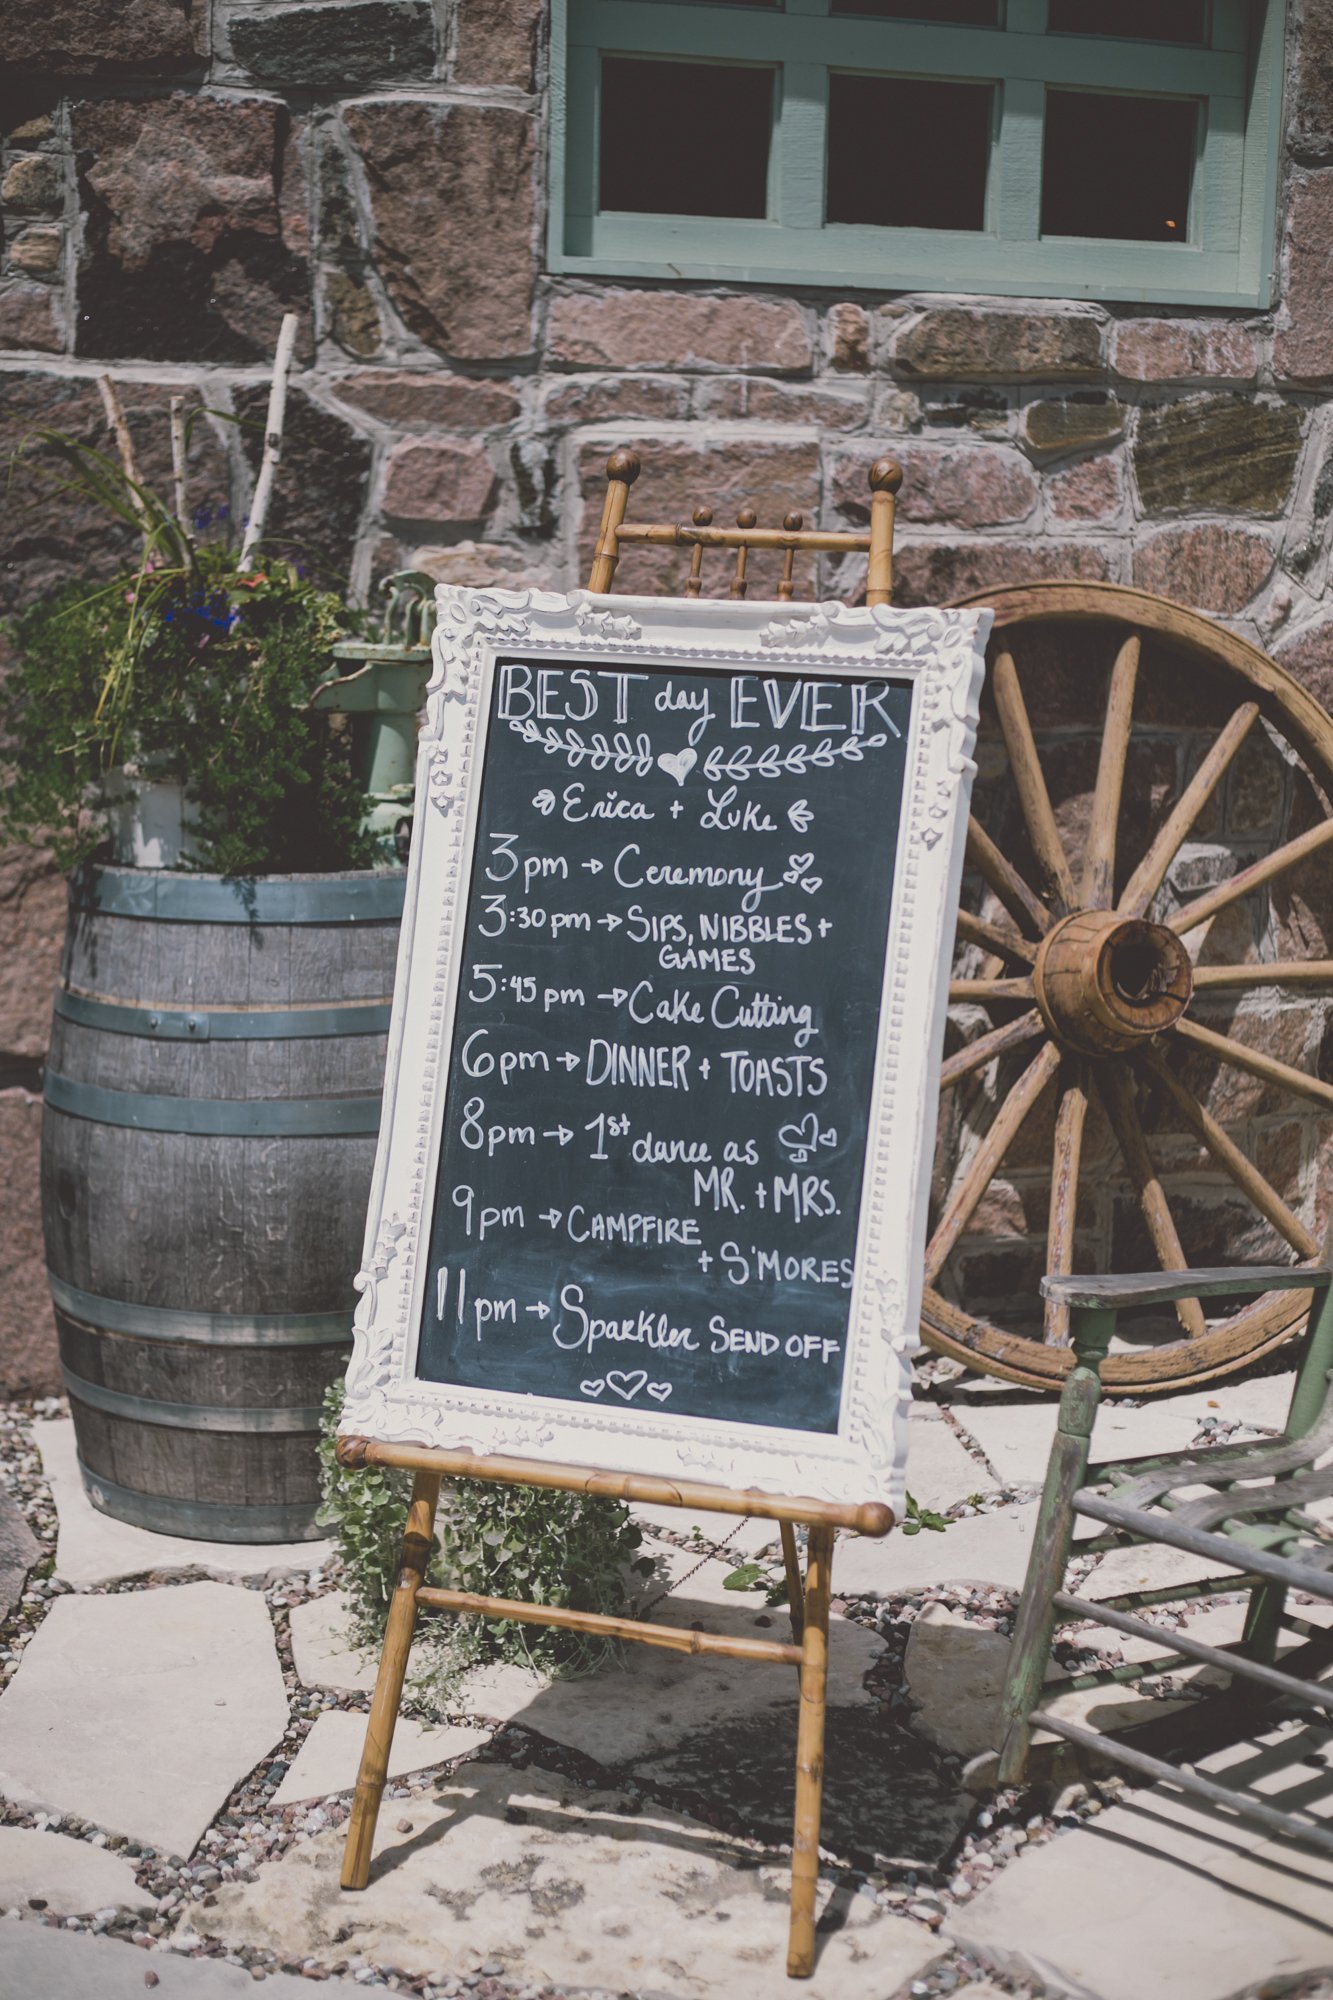 BEST day EVER
Erica + Luke
3pm → Ceremony
3:30pm → SIPS, NIBBLES +
GAMES
5:45pm → Cake Cutting
6pm → DINNER + TOASTS
8pm → 1st dance as
MR. + MRS.
9pm → CAMPFIRE
+ S'MORES
11pm → Sparkler SEND OFF